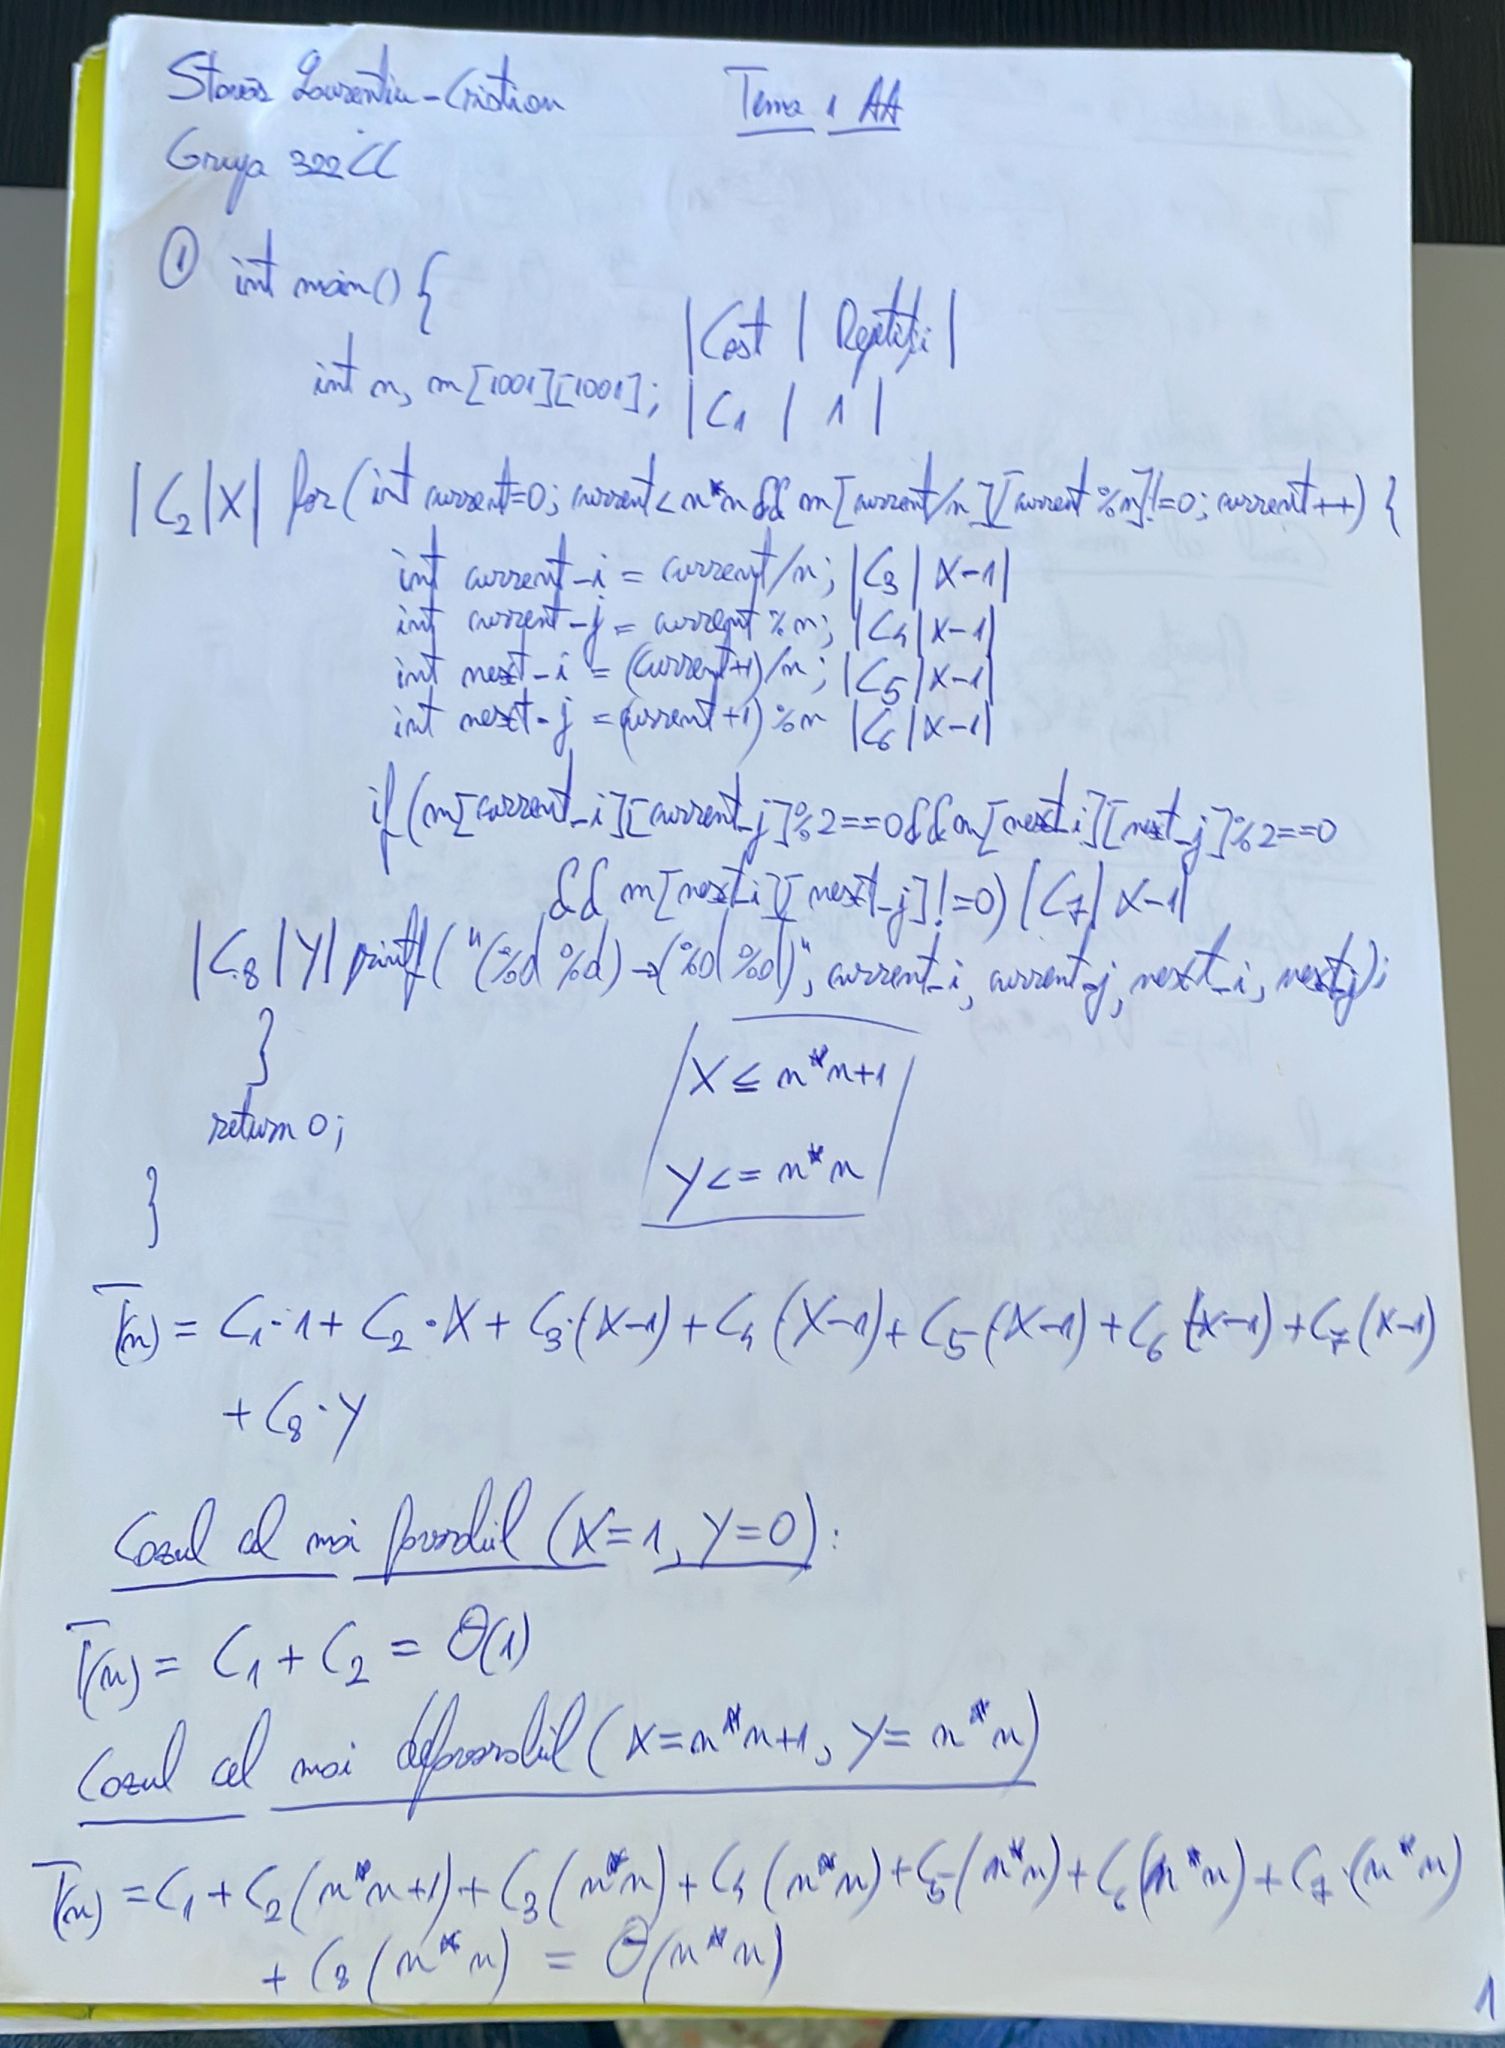 Laurentiu-Cristian Tema 1 AA
Grupa 322CC
① int main() {
|Cost | Repetiții |
int n, m[1001][1001]; |C1 | 1 |
|C2|X| for (int current=0; current<n*n && m[current/n][current%n]!=0; current++) {
int current_i = current/n; |C3| X-1|
int current_j = current%n; |C4|X-1|
int next_i = (current+1)/n; |C5|X-1|
int next_j = (current+1)%n |C6|X-1|
if (m[current_i][current_j]%2==0 && m[next_i][next_j]%2==0
&& m[next_i][next_j]!=0) |C7| X-1|
|C8|Y| printf("(%d %d)→(%d %d)", current_i, current_j, next_i, next_j);
}
X ≤ n*n+1
return 0;
Y <= n*n
}
T(n) = C1·1 + C2·X + C3·(X-1) + C4(X-1) + C5·(X-1) + C6(X-1) + C7(X-1)
+ C8·Y
Cazul cel mai favorabil (X=1, Y=0):
T(n) = C1 + C2 = Θ(1)
Cazul cel mai defavorabil (X=n*n+1, Y=n*n)
T(n) = C1 + C2(n*n+1) + C3(n*n) + C4(n*n) + C5(n*n) + C6(n*n) + C7·(n*n)
+ C8(n*n) = Θ(n*n)
1